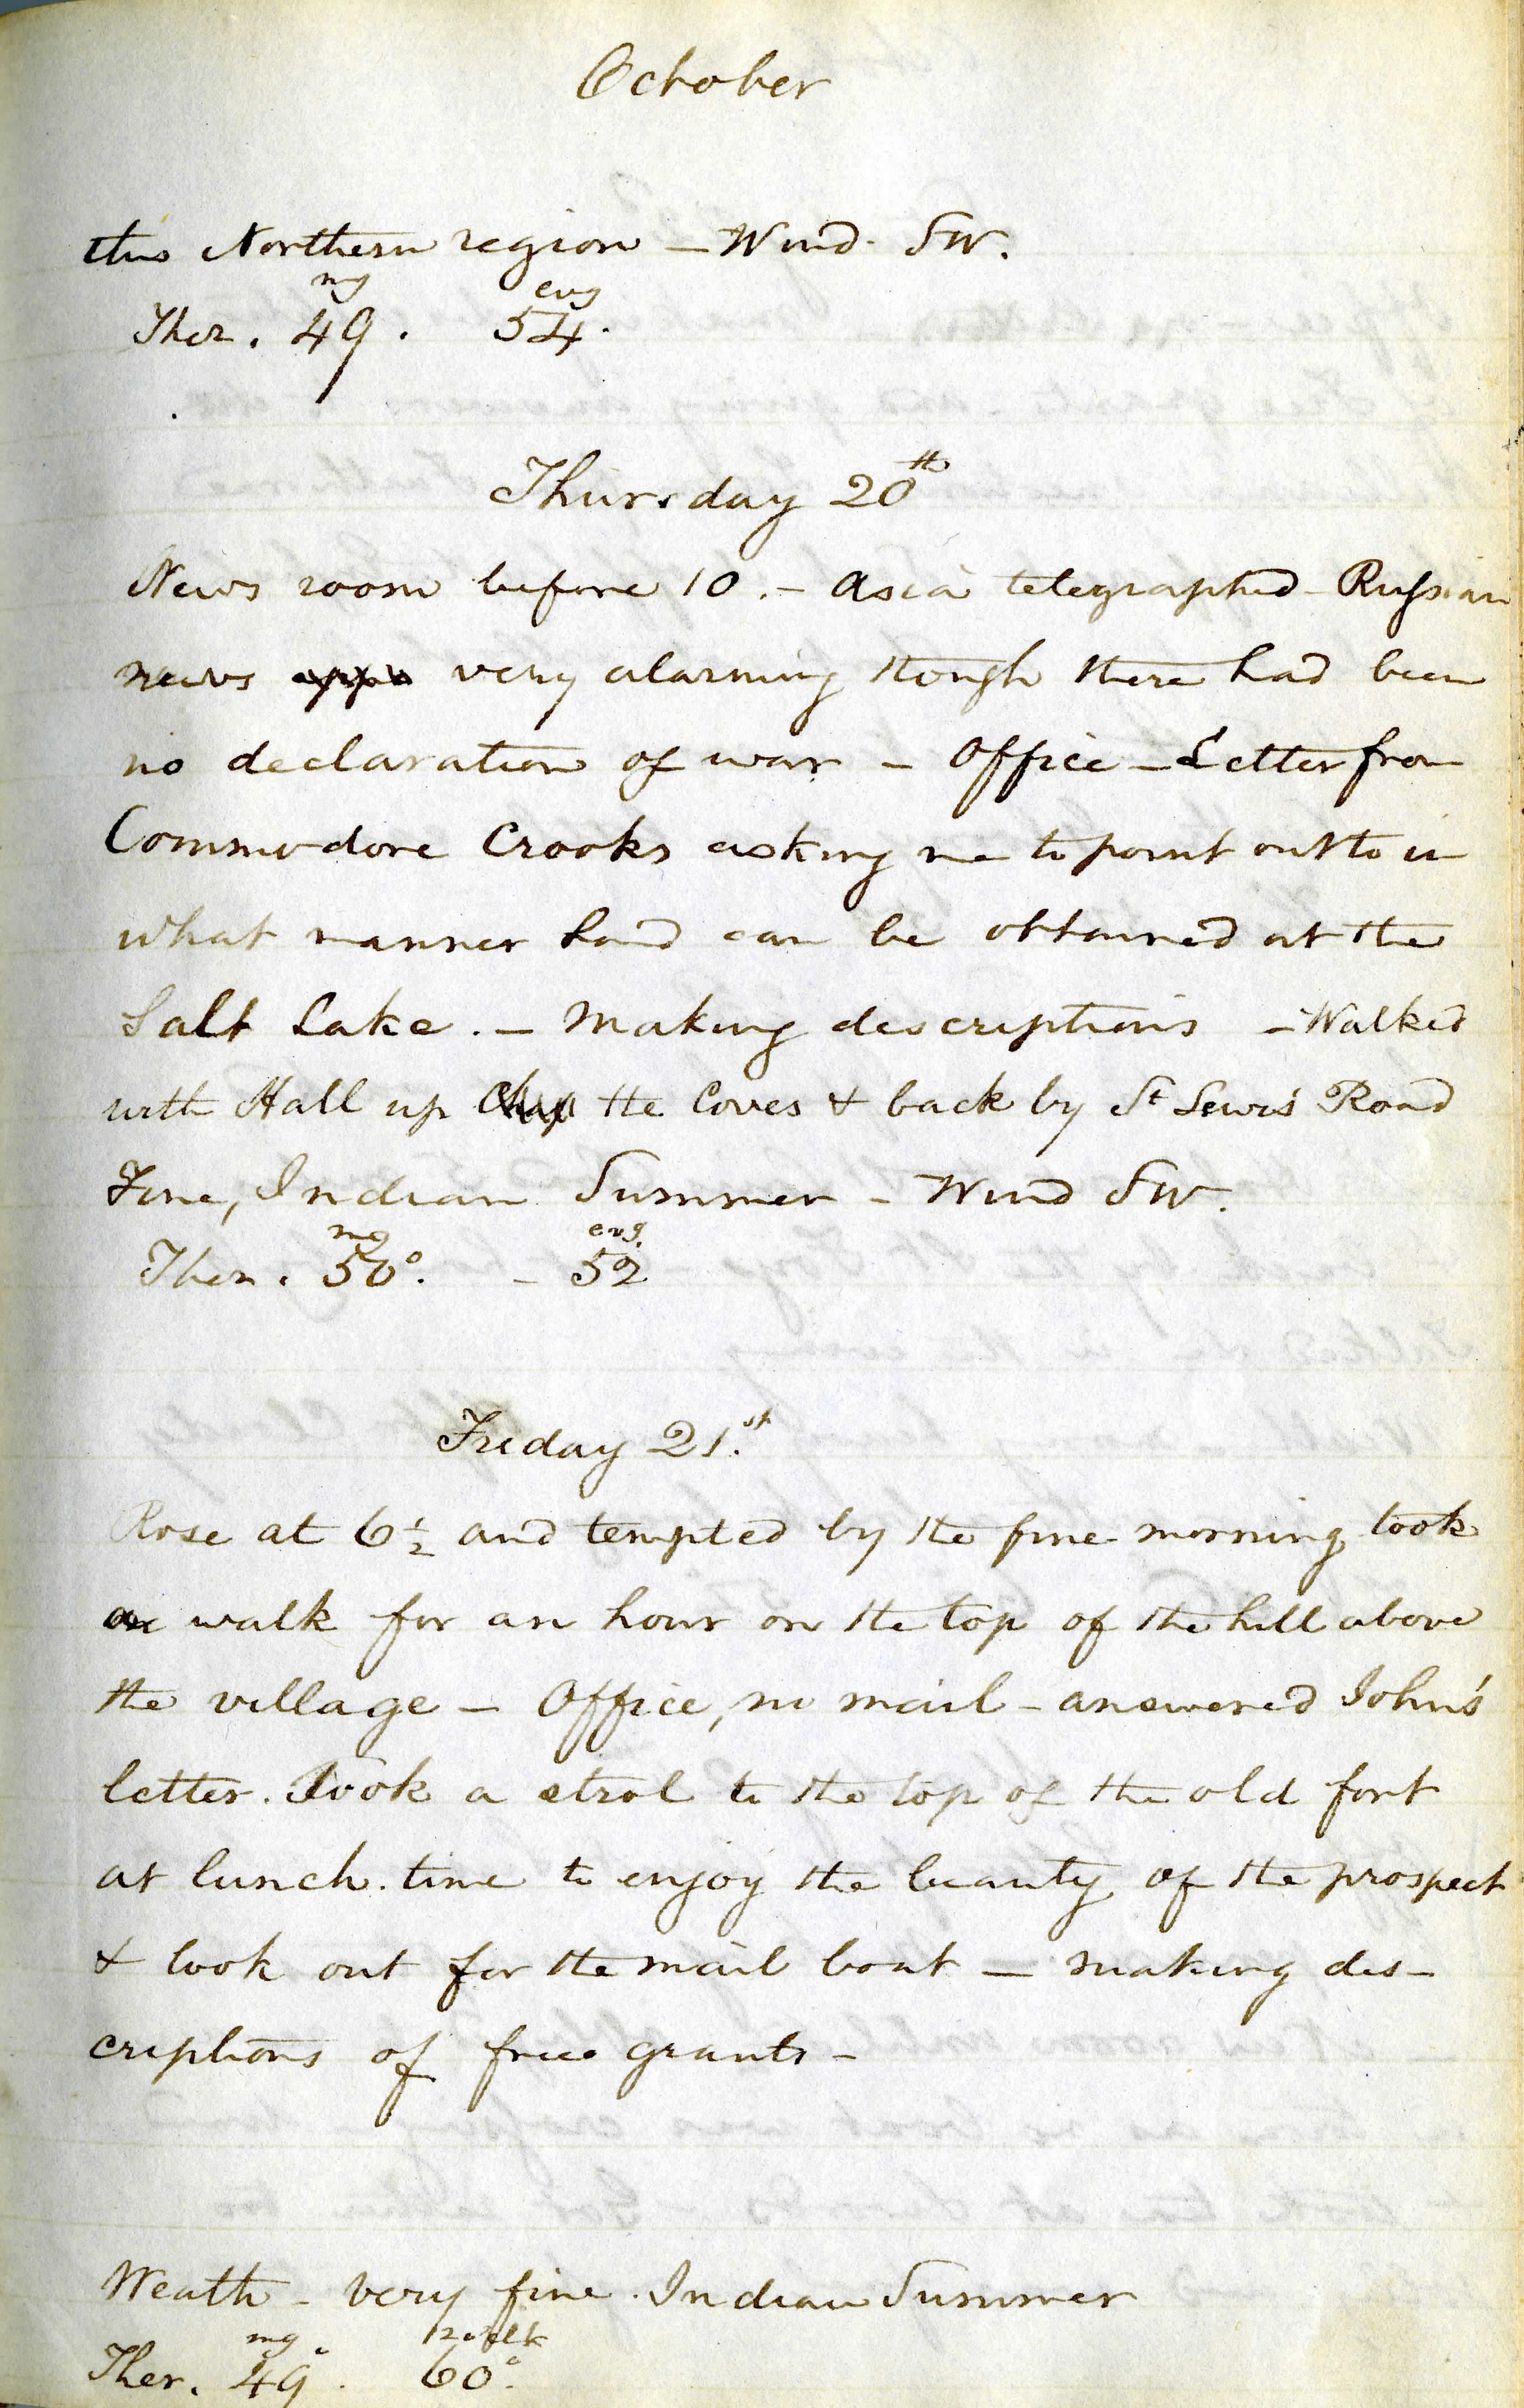 October
this Northern region – Wind SW.
mg evg
Ther. 49. 54.
Thursday 20th
News room before 10. – Asia telegraphed – Russian
news very alarming though there had been
no declaration of war – Office – Letter from
Commodore Crooks asking me to point out to in
what manner land can be obtained at the
Salt Lake. – Making descriptions – Walked
with Hall up the Coves & back by St Lewis Road
Fine, Indian Summer – Wind SW.
mg evg.
Ther. 50°. – 52
Friday 21.st
Rose at 6½ and tempted by the fine morning took
a walk for an hour on the top of the hill above
the village – Office, no mail – answered John's
letter. Took a strol to the top of the old fort
at lunch. time to enjoy the beauty of the prospect
& look out for the mail boat – making des–
criptions of free grants –
Weath – very fine. Indian Summer
mg. 12 o'clk
Ther. 49°. 60°.